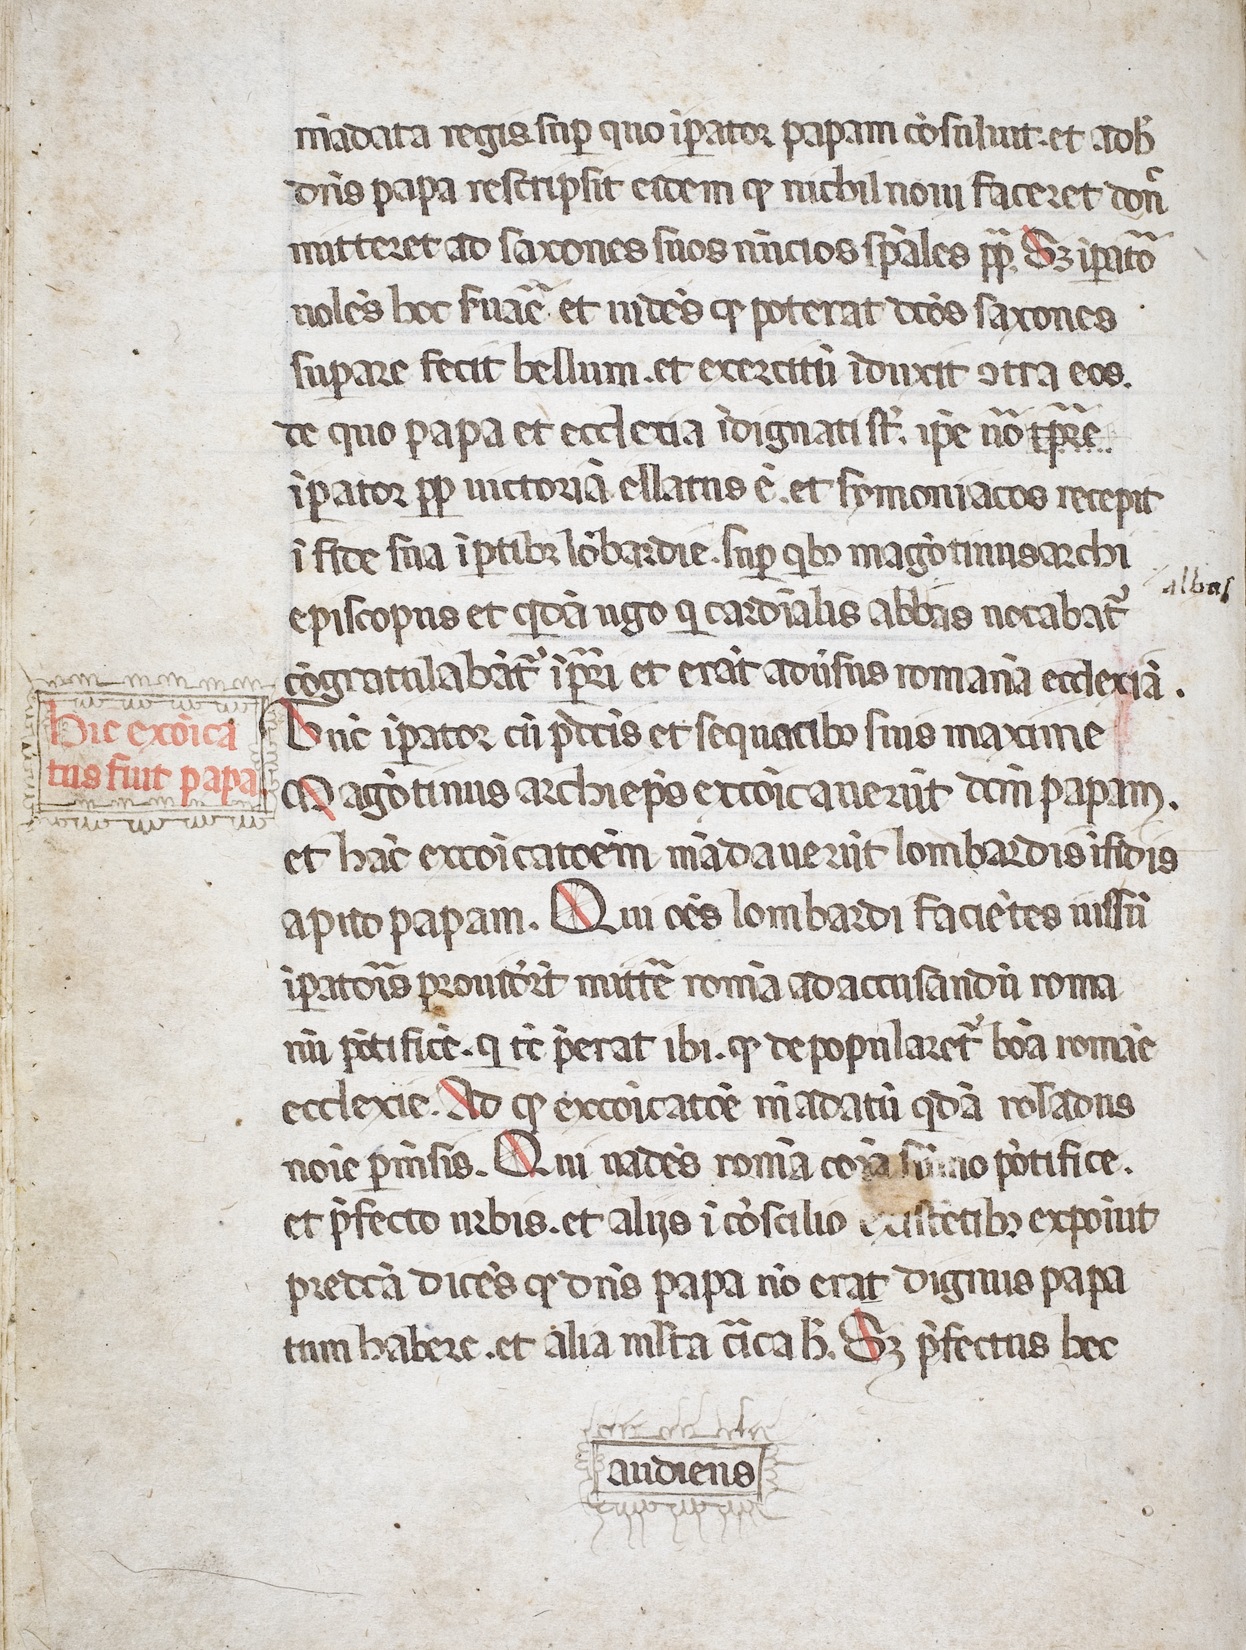 mādata regis sup quo ip̄ator papam cōsuluit. et adhͥ
dn̄s papa rescripsit eidem qͥ nichil noui faceret don̄
mitteret ad saxones suos nūcios sp̄ales pp̄. Sꝫ ip̄atō
nolēs hoc ẜuāē et uidēs qͥ poterat dc̄os saxones
sup̄are fecit bellum. et exercitū īduxit ↄtra eos.
de quo papa et ecclexia īdignati sᷤt. ip̄e nō tp̄re
īp̄ator pp̄ uictoriā ellatus ē. et symoniacos recepit
ī fide sua ī p̄tibꝫ lōbardie. sup̄ qͥbꝫ magōtinus archi
episcopus et qͥdā ugo qͥ cardīalis abbas uocabat᷑
albus
cōgratulabāt᷑ īp̄ri et erāt aduͥsus romanā ecclexiā.
Hūc ip̄ator cū p̄dc̄is et sequacibꝫ suis maxime
Hic excōica
tus fuit papa.
Magōtinus archiep̄s excōicauerūt dc̄m papam.
et hāc excōicatōem mādauerūt lombardis īfidis
a p̄ito papam. Qui oēs lombardi faciētes iussū
ip̄atōis prouidͥūt mittē̄ romā ad accusandū roma
nū pōtificē. qͥ tē p̄erat ibi. qͥ depopularet᷑ bōa romāe
ecclexie. Ad qͥ excōicatōē mādatū qͥdā rolādus
noīe p̄mīsis. Qui uadēs romā corā sūmo pōtifice.
et p̄fecto urbis. et alijs ī cōscilio existētibꝫ expoiuit
predc̄ā dicēs qͥ dn̄s papa nō erat dignus papa
tum habere. et alia ml̄ta cͥca hͥ. Sꝫ p̄fectus hec
audiens